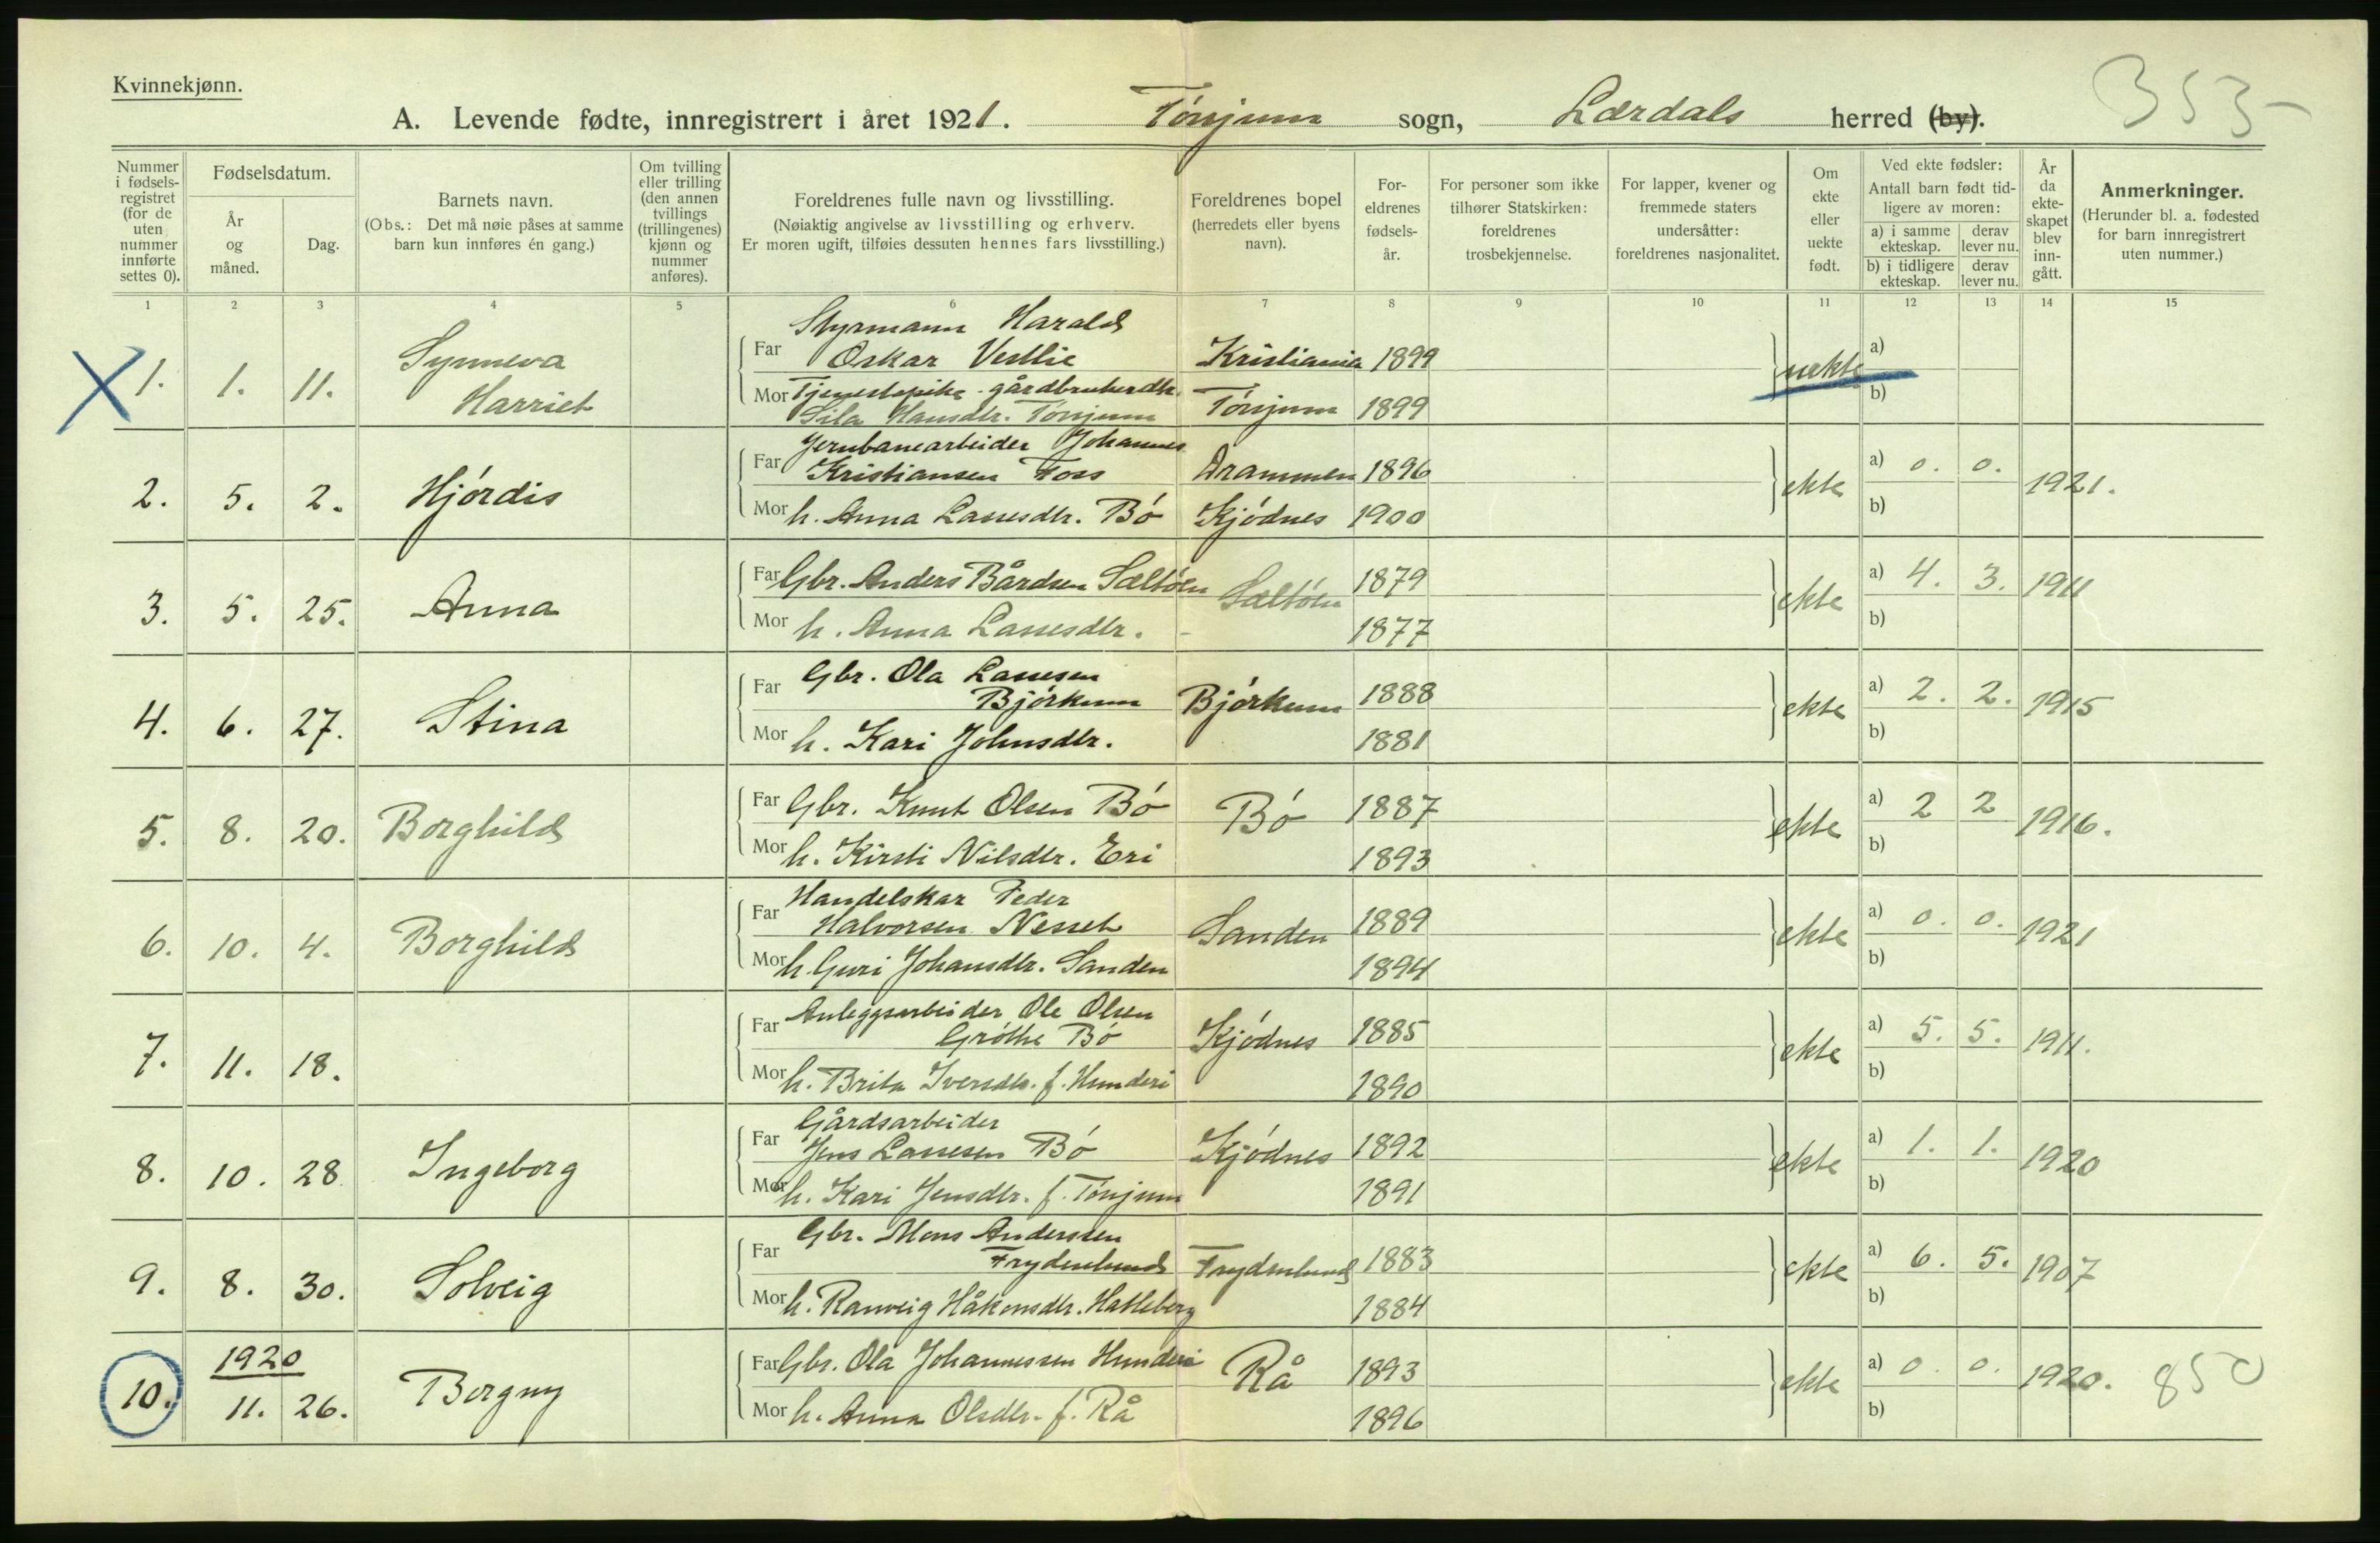 Kvinnekjønn.
353
A. Levende fødte, innregistrert i året 1921. Tønjum sogn, Lærdals herred (by).
Nummer i fødsels-registret (for de uten nummer innførte settes 0).
Fødselsdatum.
År og måned.
Dag.
Barnets navn.
(Obs.: Det må nøie påses at samme barn kun innføres én gang.)
Om tvilling eller trilling (den annen tvillings (trillingenes) kjønn og nummer anføres).
Foreldrenes fulle navn og livsstilling.
(Nøiaktig angivelse av livsstilling og erhverv.
Er moren ugift, tilføies dessuten hennes fars livsstilling.)
Foreldrenes bopel
(herredets eller byens navn).
For-eldrenes fødsels-år.
For personer som ikke tilhører Statskirken: foreldrenes trosbekjennelse.
For lapper, kvener og fremmede staters undersåtter: foreldrenes nasjonalitet.
Om ekte eller uekte født.
Ved ekte fødsler:
Antall barn født tid-ligere av moren:
a) i samme ekteskap.
derav lever nu.
b) i tidligere ekteskap.
derav lever nu.
År da ekte-skapet blev inn-gått.
Anmerkninger.
(Herunder bl. a. fødested for barn innregistrert uten nummer.)
1 2 3 4 5 6 7 8 9 10 11 12 13 14 15
Styrmann Harald
X 1. 1. 11. Synneva Far Oskar Vestlie Kristiania 1899 uekte a)
Harriet Mor Tjenestepike - gårdbrukerdtr.
Sila Hansdtr. Tönjum Tönjum 1899 b)
Jernbanearbeider Johannes
Far Kristiansen Foss Drammen 1896 a) 0. 0.
2. 5. 2. Hjördis ekte 1921.
Mor h. Anna Lassesdtr. Bö Kjödnes 1900 b)
Far Gbr. Anders Bårdsen Sæltöen Sæltöen 1879 a) 4. 3.
3. 5. 25. Anna ekte 1911
Mor h. Anna Lassesdtr. - 1877 b)
Far Gbr. Ola Lassesen
Björkum Björkum 1888 a) 2. 2.
4. 6. 27. Stina ekte 1915
Mor h. Kari Johnsdtr. 1881 b)
Far Gbr. Knut Olsen Bö Bö 1887 a) 2 2
5. 8. 20. Borghild ekte 1916.
Mor h. Kirsti Nilsdtr. Eri 1893 b)
Handelskar Peder
Far Halvorsen Nesset Sanden 1889 a) 0. 0.
6. 10. 4. Borghild ekte 1921
Mor h. Guri Johansdtr. Sanden 1894 b)
Far Anleggsarbeider Ole Olsen
Gröthe Bö Kjödnes 1885 a) 5. 5.
7. 11. 18. ekte 1911.
Mor h. Brita Iversdtr. f. Hunderi 1890 b)
Gårdsarbeider
Far Jens Lassesen Bö Kjödnes 1892 a) 1. 1.
8. 10. 28. Ingeborg ekte 1920
Mor h. Kari Jensdtr. f. Tönjum 1891 b)
Gbr. Mons Anderssen
Far Frydenlund Frydenlund 1883 a) 6. 5.
9. 8. 30. Solveig ekte 1907
Mor h. Ranveig Håkonsdtr. Hatleberg 1884 b)
1920
Far Gbr. Ola Johannessen Hunderi Rå 1893 a) 0. 0.
10. 11. 26. Borgny ekte 1920. 850
Mor h. Anna Olsdtr. f. Rå 1896 b)